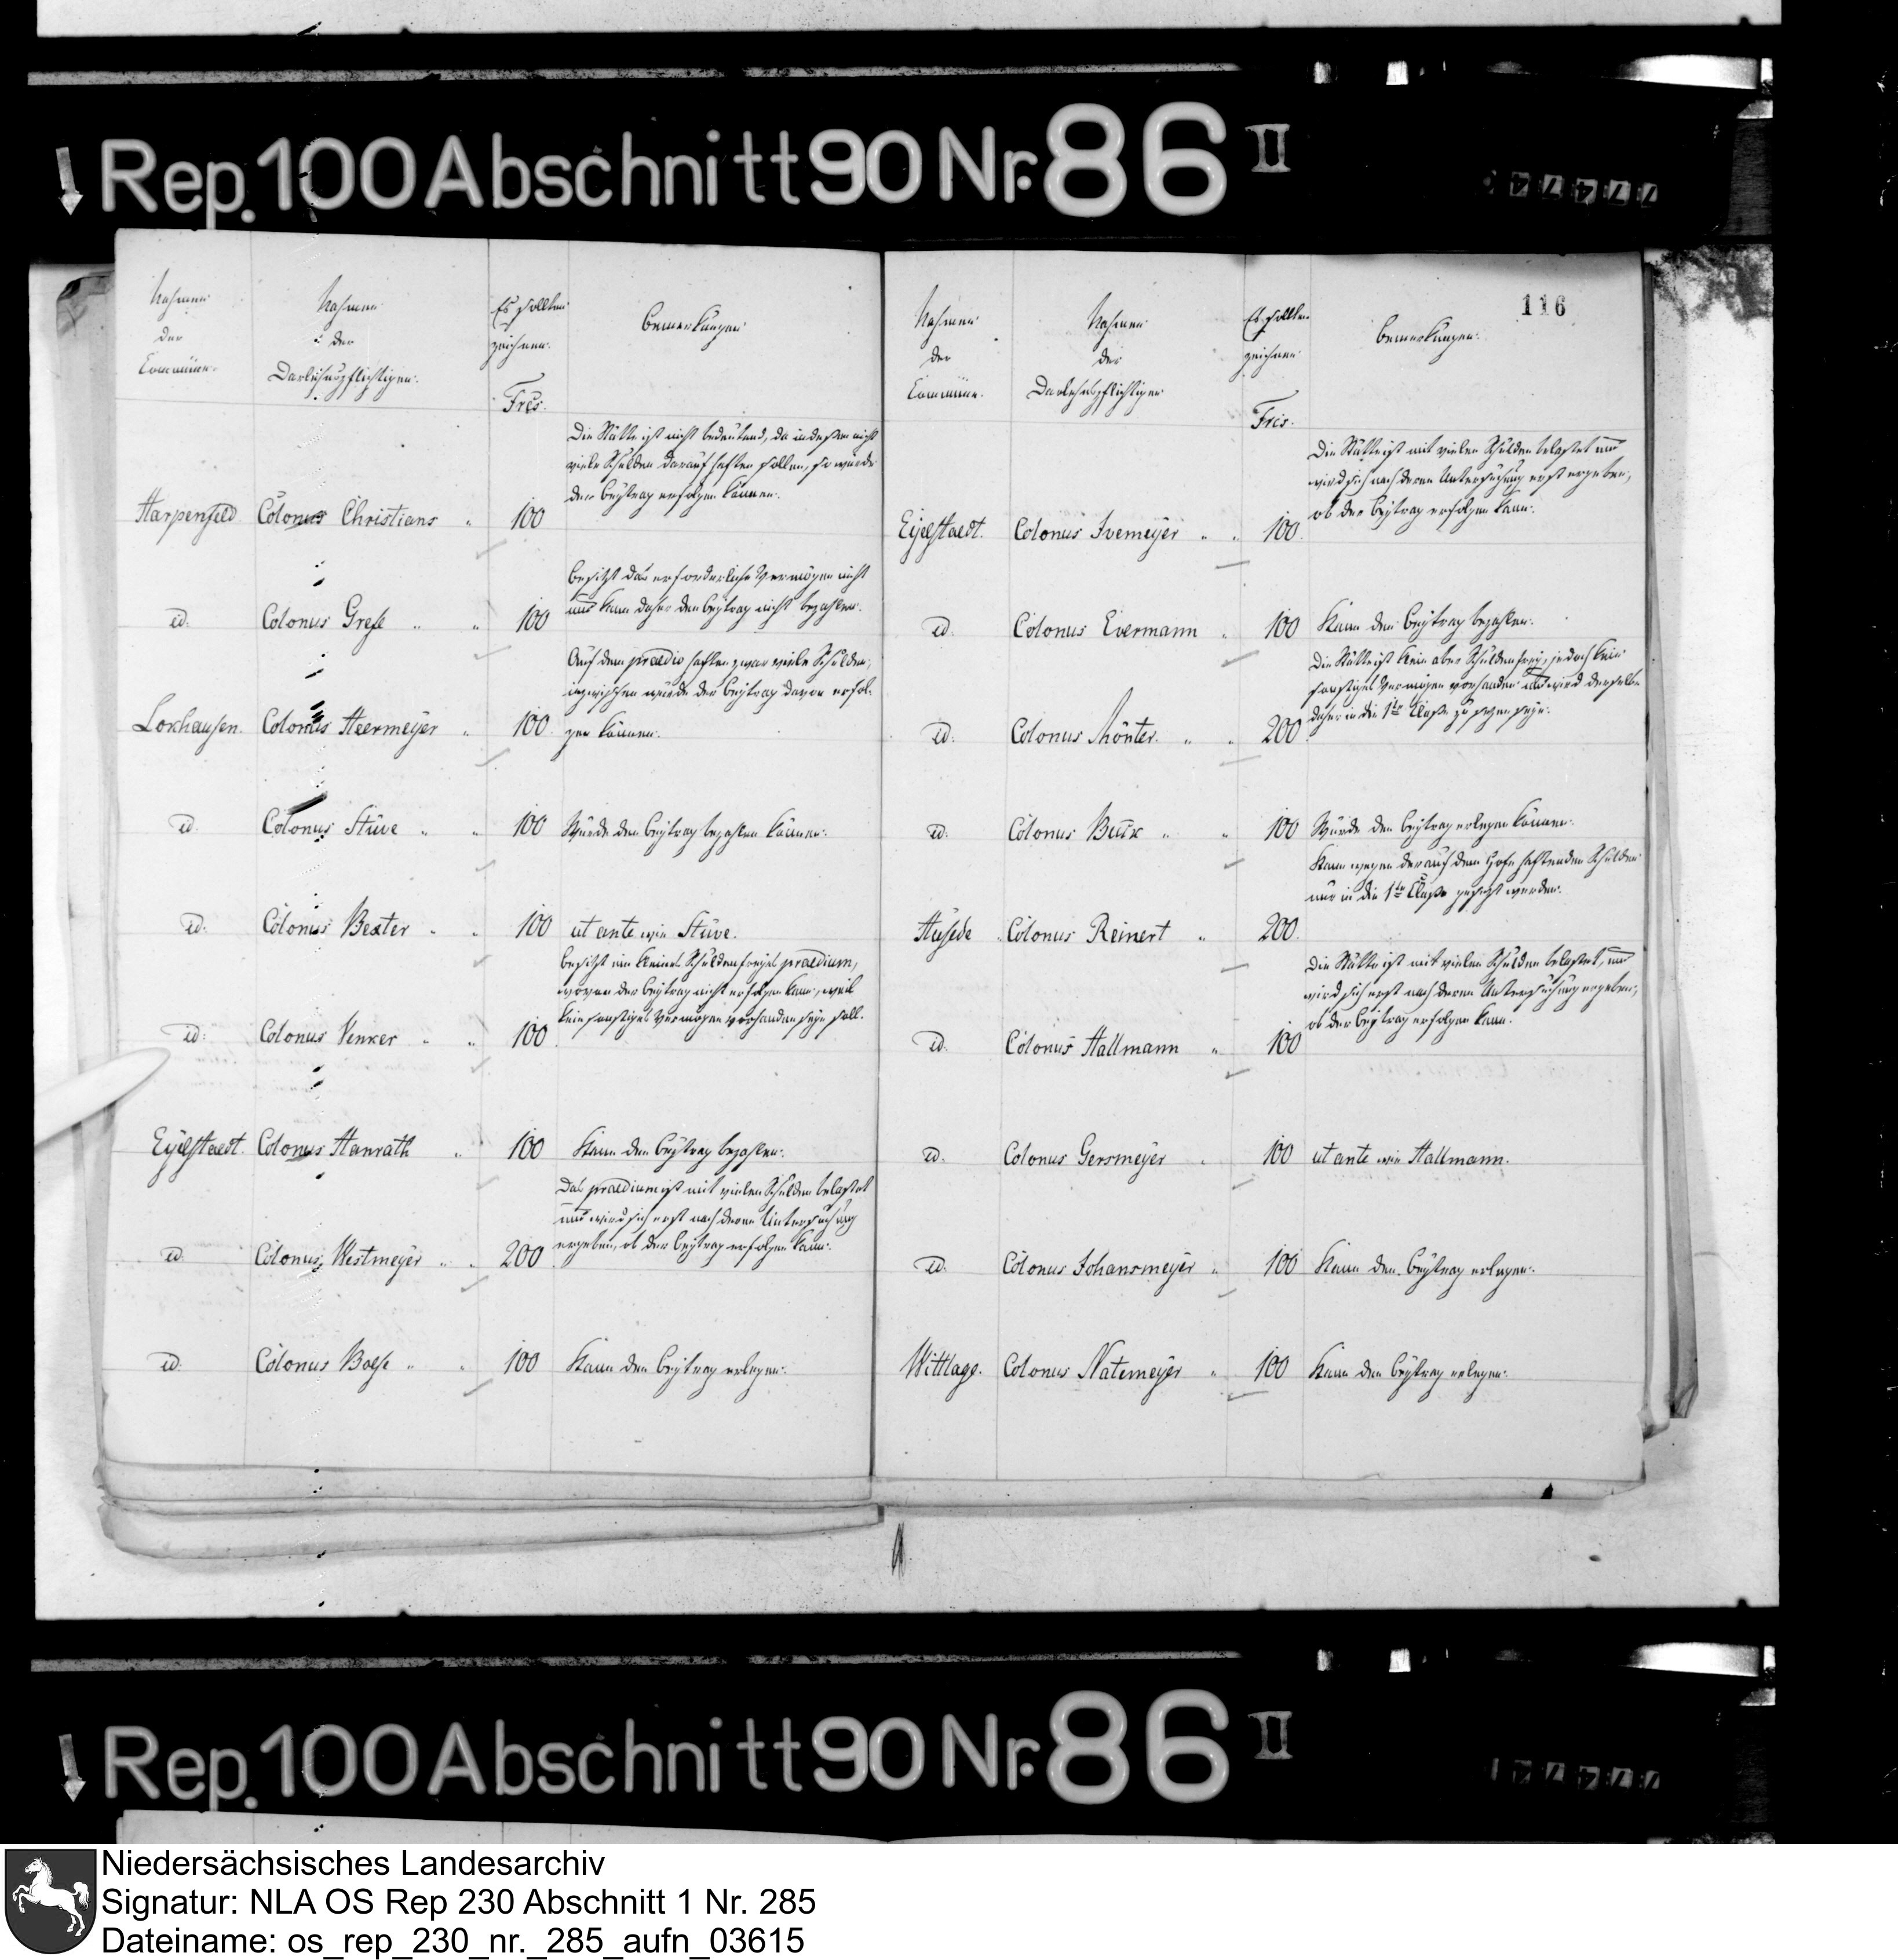 Rep. 100 Abschnitt 90 Nr. 86 II
Nahmen
der
Commüne.
Nahmen
der
Darlehnspflichtigen.
Es sollten
zeichnen.
Frcs.
Bemerkungen.
Die Stätte ist nicht bedeutend, da indessen nicht
viele Schulden darauf haften sollen, so würde
der Beytrag erfolgen können.
Harpenfeld Colonus Christians " 100
Besitzt das erforderliche Vermögen nicht
und kann daher den Beytrag nicht bezahlen.
id. Colonus Grese " " 100
Auf dem praedio haften zwar viele Schulden,
inzwischen würde der Beytrag davon erfol-
Lockhausen. Colonus Heermeyer " 100 gen können.
id. Colonus Stüve " " 100 Würde den Beytrag bezahlen können.
id. Colonus Bexter " " 100 ut ante wie Stüve.
Besitzt ein kleines Schuldenfreyes praedium,
wovon der Beytrag nicht erfolgen kann, weil
kein sonstiges Vermögen vorhanden seyn soll.
id. Colonus Venker " " 100
Eyelstaedt. Colonus Hanrath " 100 Kann den Beytrag bezahlen.
Das praedium ist mit vielen Schulden belastet
und wird sich erst nach deren Untersuchung
ergeben, ob der Beytrag erfolgen kann.
id. Colonus Westmeyer " " 200
id. Colonus Bolse " " 100 Kann den Beytrag erlegen.
116
Nahmen
der
Commüne.
Nahmen
der
Darlehnspflichtigen
Es sollten
zeichnen.
Frcs.
Bemerkungen.
Die Stätte ist mit vielen Schulden belastet und
wird sich nach deren Untersuchung erst ergeben,
ob der Beytrag erfolgen kann.
Eyelstaedt. Colonus Ivemeyer " " 100.
id. Colonus Evermann " 100 Kann den Beytrag bezahlen.
Die Stätte ist klein aber Schuldenfrey, jedoch kein
sonstiges Vermögen vorhanden und wird derselbe
daher in die 1te Classe zu setzen seyn.
id. Colonus Mönter " " 200
id. Colonus Buck " " 100 Würde den Beytrag erlegen können.
Kann wegen der auf dem Hofe haftenden Schulden
nur in die 1te Classe gesetzt werden.
Hüsede " Colonus Reinert " 200.
Die Stätte ist mit vielen Schulden belastet, und
wird sich erst nach deren Untersuchung ergeben,
ob der Beytrag erfolgen kann.
id. Colonus Hallmann " 100
id. Colonus Gersmeyer " 100 ut ante wie Hallmann.
id. Colonus Johansmeyer " 100 Kann den Beytrag erlegen.
Wittlage. Colonus Natemeyer " 100 Kann den Beytrag erlegen.
Rep. 100 Abschnitt 90 Nr. 86 II
Niedersächsisches Landesarchiv
Signatur: NLA OS Rep 230 Abschnitt 1 Nr. 285
Dateiname: os_rep_230_nr._285_aufn_03615